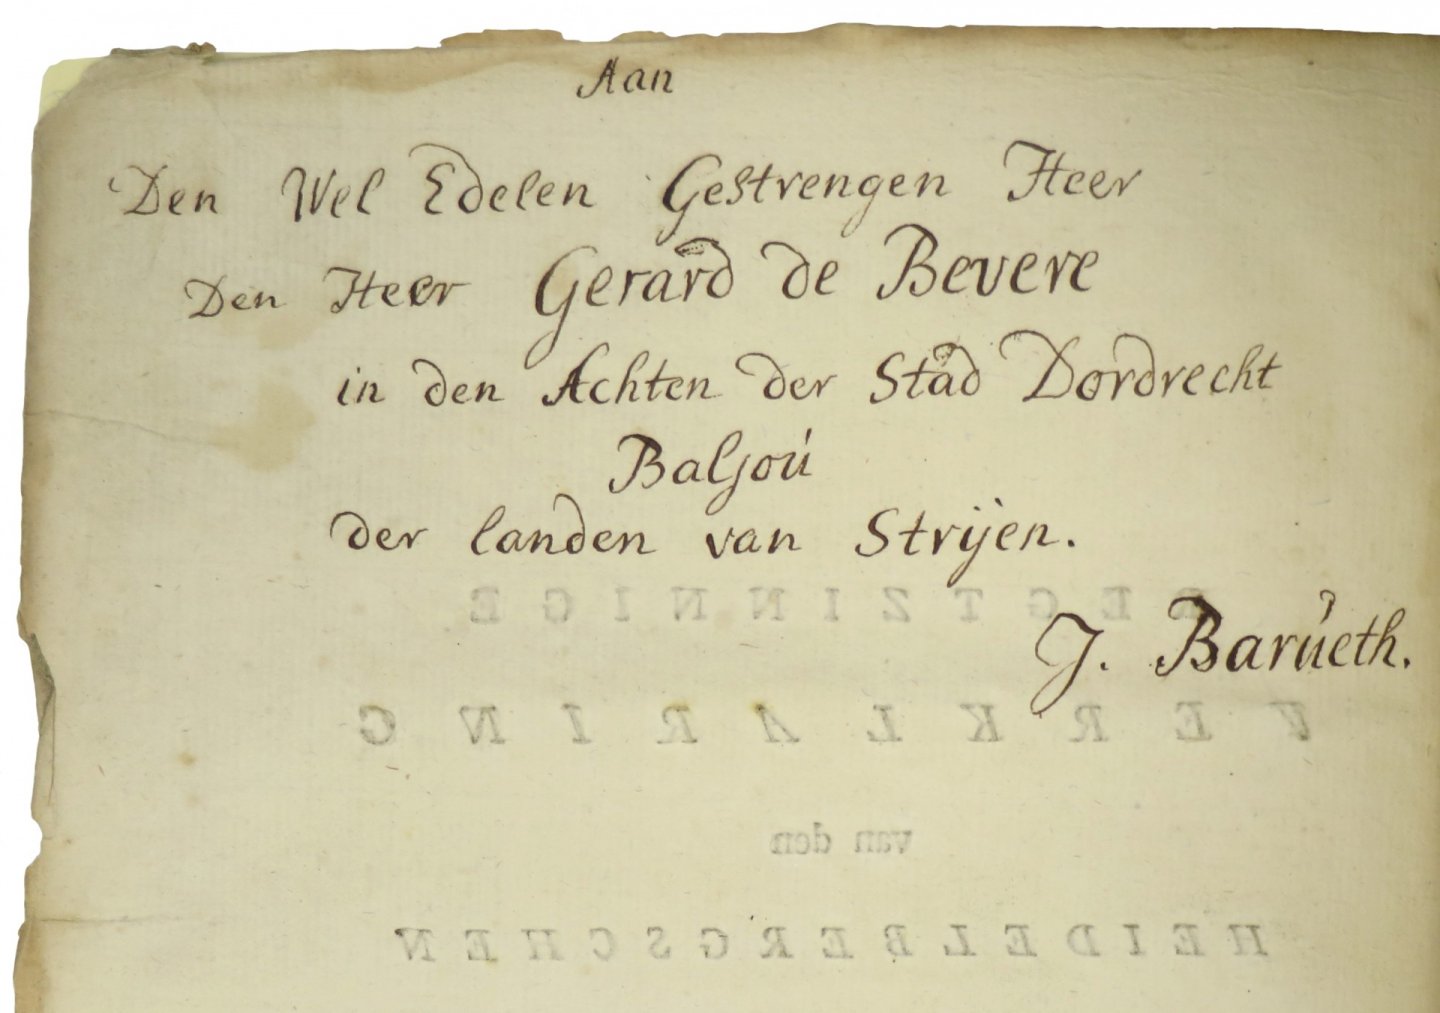 Aan
Den Wel Edelen Gestrengen Heer
Den Heer Gerard de Bevere
in den Achten der Stad Dordrecht
Baljoú
der landen van Strijen.
REGTZINNIGE
J. Barúeth.
VERKLARING
van den
HEIDELBERGSCHEN